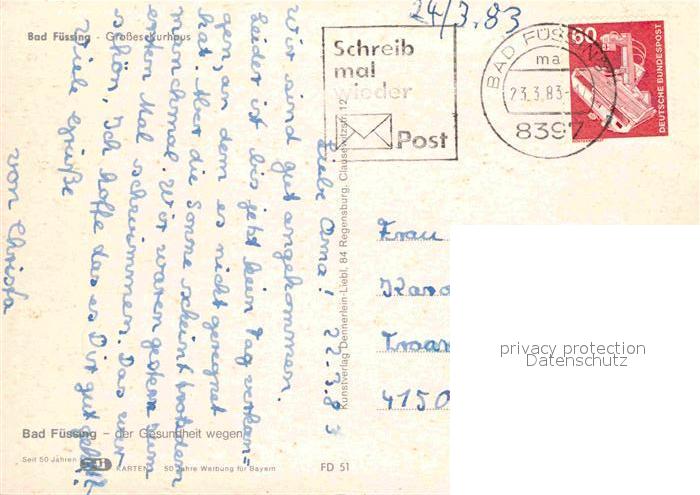 24/3.83
Bad Füssing - Großes Kurhaus
Schreib
mal
wieder
Post
BAD FÜSSING
ma
23.3.83-
8397
60
DEUTSCHE BUNDESPOST
Liebe Oma! 22.3.83
Wir sind gut angekommen.
Leider ist bis jetzt kein Tag vergan=
gen, an dem es nicht geregnet
hat. Aber die Sonne scheint trotzdem
manchmal. Wir waren gestern zum
ersten Mal schwimmen. Das war
schön. Ich hoffe das es Dir gut geht.
Viele Grüße
von Christa
Kunstverlag Dennerlein-Liebl, 84 Regensburg, Clausewitzstr. 12
Frau
4150
privacy protection
Datenschutz
Bad Füssing – der Gesundheit wegen
Seit 50 Jahren
KARTEN
50 Jahre Werbung für Bayern
FD 51